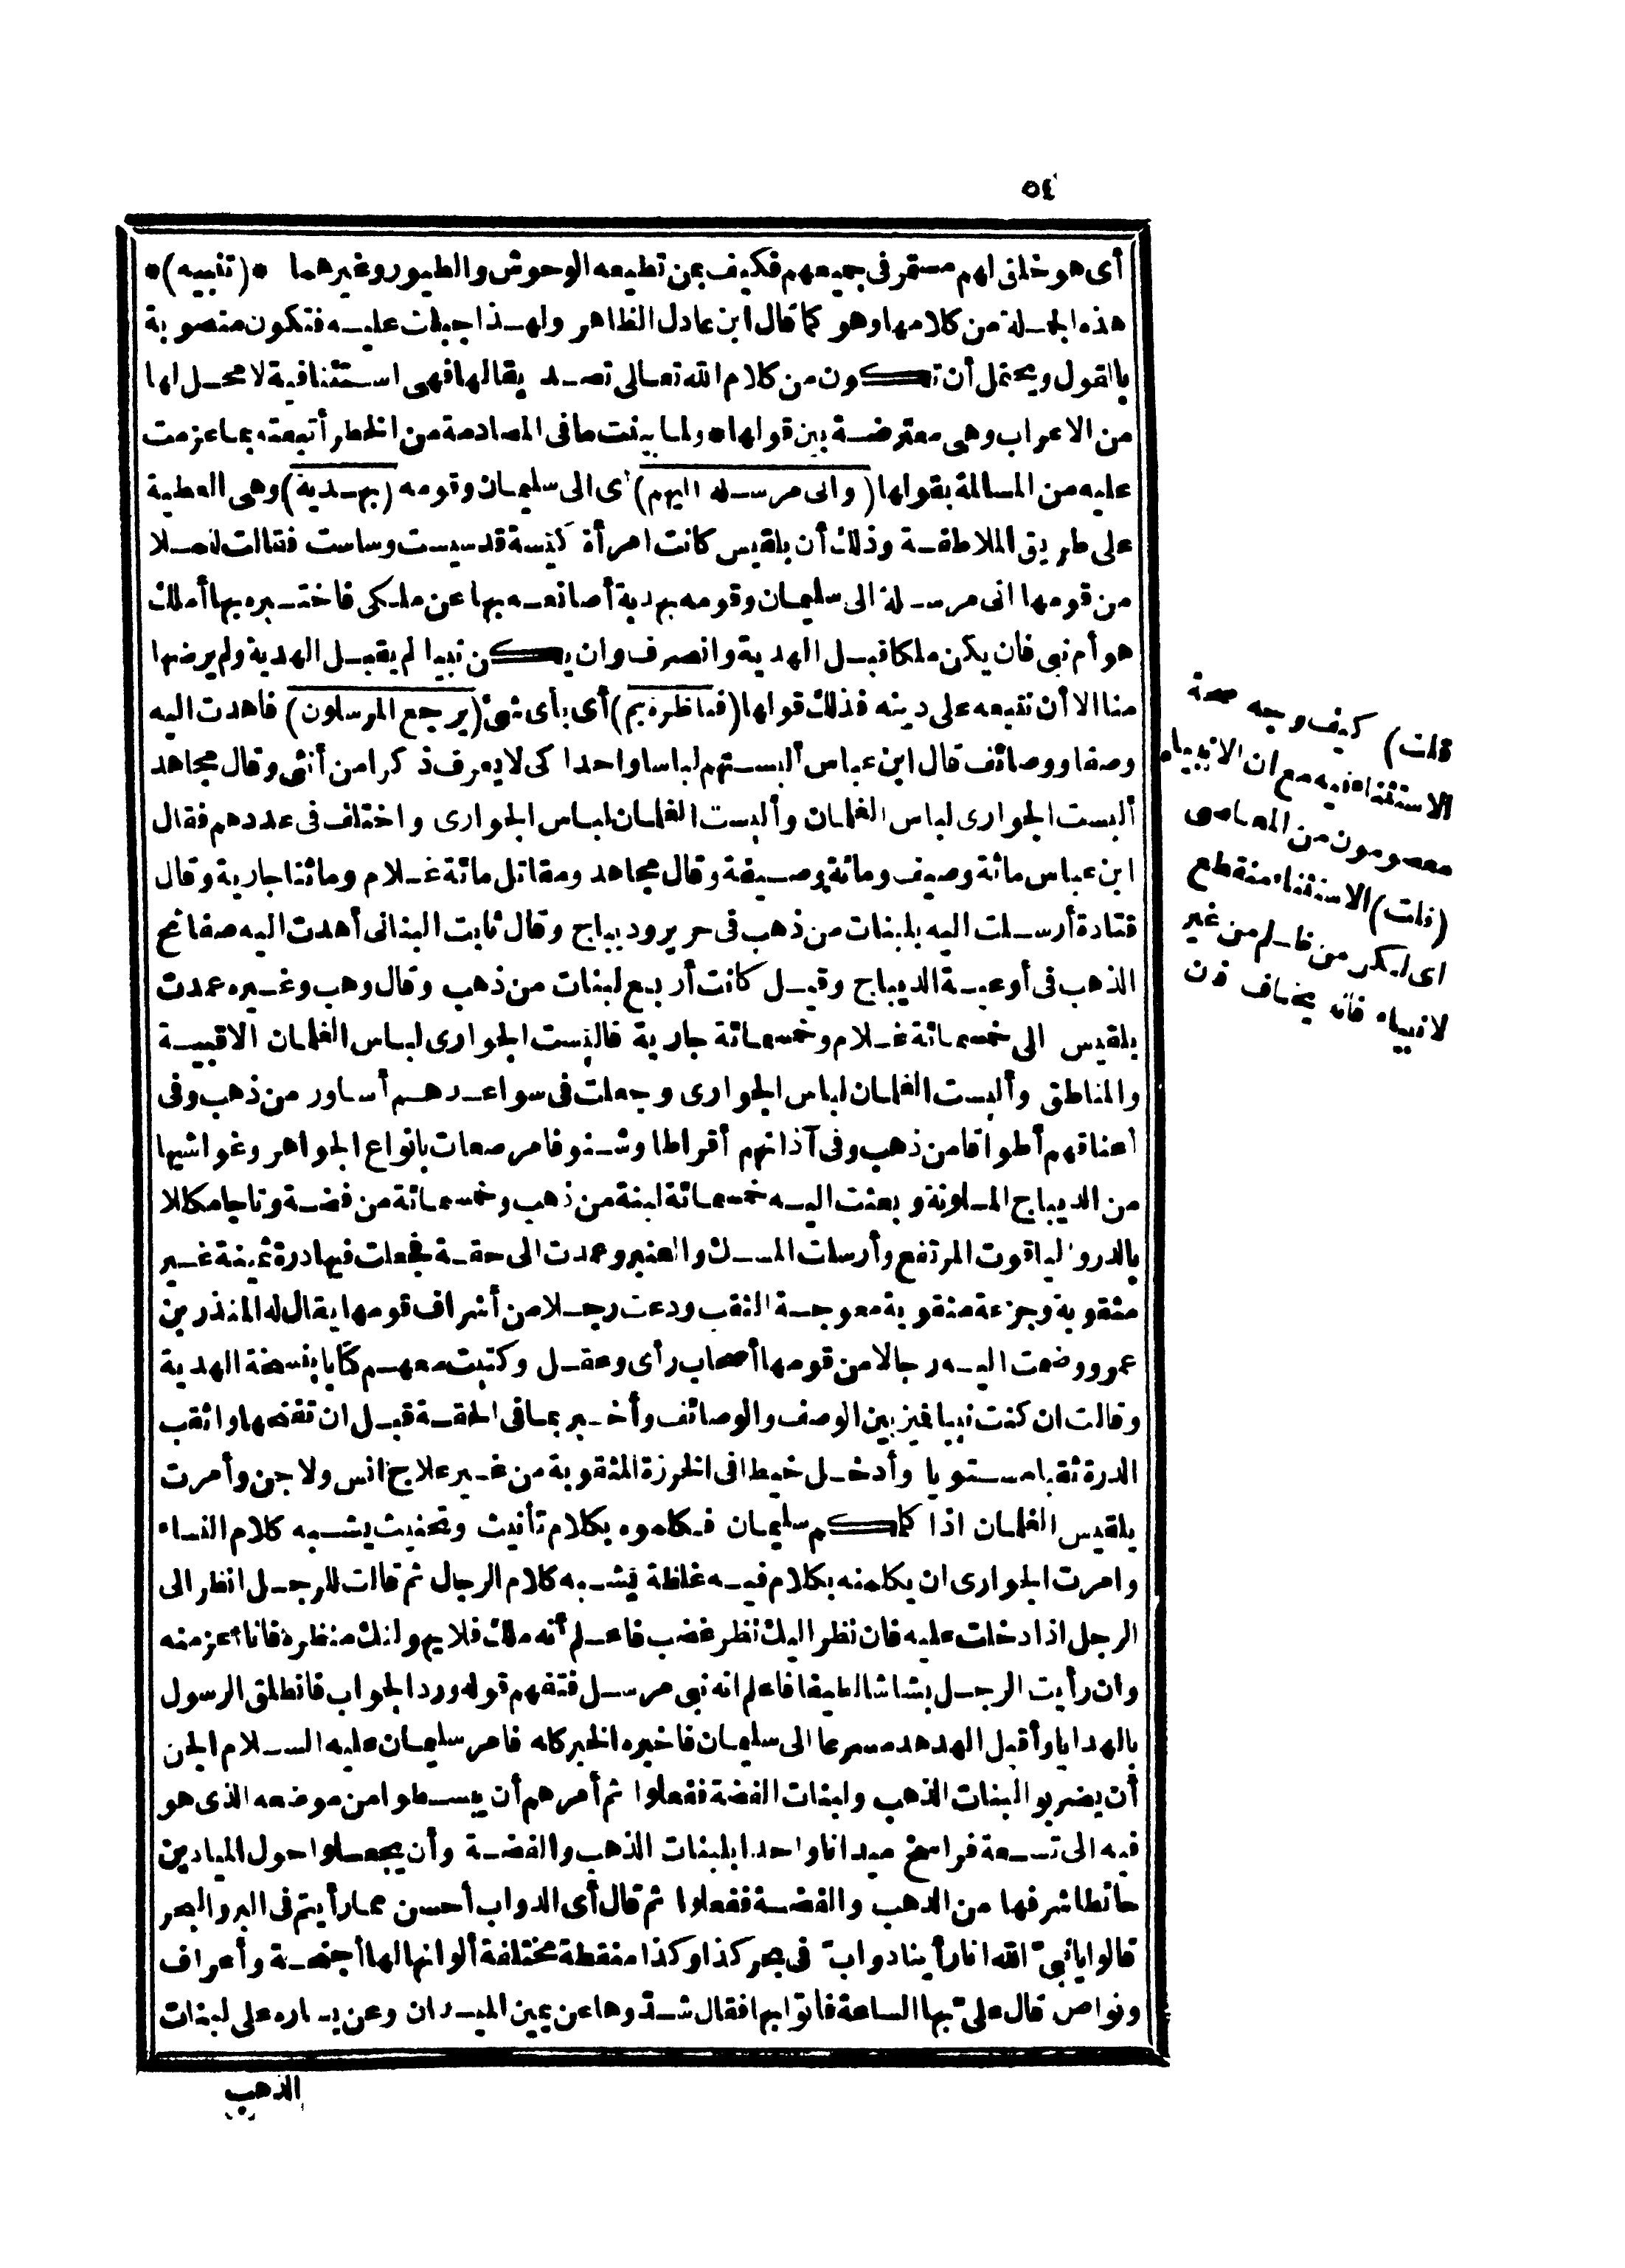 ٥٤
أى هو خلق لهم مستمر فى جميعهم فكيف بمن تطيعه الوحوش والطيور وغيرهما * (تنبيه) *
هذه الجملة من كلامها وهو كما قال ابن عادل الظاهر ولهذا جبلت عليه فتكون منصوبة
بالقول ويحتمل أن تكون من كلام الله تعالى تصديقا لها فهى استئنافية لا محل لها
من الاعراب وهى معترضة بين قولها * ولما بينت ما فى المصادمة من الخطر أتبعته بما عزمت
عليه من المسالمة بقولها (وانى مرسلة اليهم) أى الى سليمان وقومه (بهدية) وهى العطية
على طريق الملاطفة وذلك أن بلقيس كانت امرأة كيسة قد سيست وساست فقالت للملا
من قومها انى مرسلة الى سليمان وقومه بهدية أصانعه بها عن ملكى فاختبره بها أملك
هو أم نبى فان يكن ملكا قبل الهدية وانصرف وان يكن نبيا لم يقبل الهدية ولم يرضها
منا الا أن نتبعه على دينه فذلك قولها (فناظرة بم) أى بأى شئ (يرجع المرسلون) فاهدت اليه
وصفا ووصائف قال ابن عباس ألبستهم لباسا واحدا كى لا يعرف ذكرا من أنثى وقال مجاهد
ألبست الجوارى لباس الغلمان وألبست الغلمان لباس الجوارى واختلف فى عددهم فقال
ابن عباس مائة وصيف ومائة وصيفة وقال مجاهد ومقاتل مائة غلام ومائتا جارية وقال
قتادة أرسلت اليه بلبنات من ذهب فى حرير وديباج وقال ثابت البنانى أهدت اليه صفائح
الذهب فى أوعية الديباج وقيل كانت أربع لبنات من ذهب وقال وهب وغيره عمدت
بلقيس الى خمسمائة غلام وخمسمائة جارية فالبست الجوارى لباس الغلمان الاقبية
والمناطق وألبست الغلمان لباس الجوارى وجعلت فى سواعدهم أساور من ذهب وفى
أعناقهم أطواقا من ذهب وفى آذانهم أقراطا وشنوفا مرصعات بانواع الجواهر وغواشيها
من الديباج الملونة وبعثت اليه خمسمائة لبنة من ذهب وخمسمائة من فضة وتاجا مكللا
بالدر والياقوت المرتفع وأرسلت المسك والعنبر وعمدت الى حقة فجعلت فيها درة ثمينة غير
مثقوبة وجزعة مثقوبة معوجة الثقب ودعت رجلا من أشراف قومها يقال له المنذر بن
عمرو وضمت اليه رجالا من قومها أصحاب رأى وعقل وكتبت معهم كتابا بنسخة الهدية
وقالت ان كنت نبيا فميز بين الوصف والوصائف وأخبر بما فى الحقة قبل ان تفتحها واثقب
الدرة ثقبا مستويا وأدخل خيطا فى الخرزة المثقوبة من غير علاج انس ولا جن وأمرت
بلقيس الغلمان اذا كلمكم سليمان فكلموه بكلام تأنيث وتخنيث يشبه كلام النساء
وامرت الجوارى ان يكلمنه بكلام فيه غلظة يشبه كلام الرجال ثم قالت للرجل انظر الى
الرجل اذا دخلت عليه فان نظر اليك نظر غضب فاعلم أنه ملك فلا يهولنك منظره فانا أعز منه
وان رأيت الرجل بشاشا لطيفا فاعلم انه نبى مرسل فتفهم قوله ورد الجواب فانطلق الرسول
بالهدايا وأقبل الهدهد مسرعا الى سليمان فاخبره الخبر كله فامر سليمان عليه السلام الجن
أن يضربوا لبنات الذهب ولبنات الفضة ففعلوا ثم أمرهم أن يبسطوا من موضعه الذى هو
فيه الى تسعة فراسخ ميدانا واحدا بلبنات الذهب والفضة وأن يجعلوا حول الميادين
حائطا شرفها من الذهب والفضة ففعلوا ثم قال أى الدواب أحسن مما رأيتم فى البر والبحر
قالوا يا نبىّ الله انا رأينا دوابّ فى بحر كذا وكذا منقطة مختلفة ألوانها لها أجنحة وأعراف
ونواص قال علىّ بها الساعة فاتوا بها فقال شدّوها عن يمين الميدان وعن يساره على لبنات
الذهب
قلت) كيف وجه صحة
الاستثناء فيه مع ان الانبياء
معصومون من المعاصى
(قلت) الاستثناء منقطع
اى لكن من ظلم من غير
لانبياء فانه يخاف فان